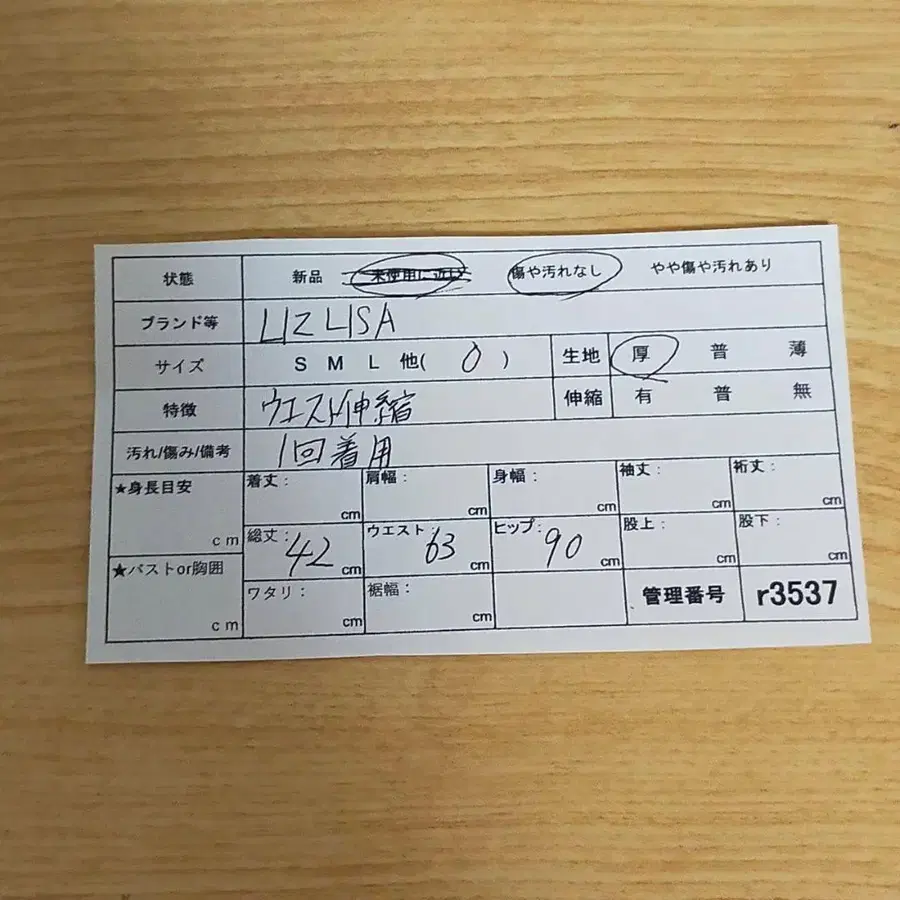 状態 新品 未使用に近い 傷や汚れなし やや傷や汚れあり
ブランド等 LIZ LISA
サイズ S M L 他( 0 ) 生地 厚 普 薄
特徴 ウエスト伸縮 伸縮 有 普 無
汚れ/傷み/備考 1回着用
★身長目安 cm 着丈: cm 肩幅: cm 身幅: cm 袖丈: cm 裄丈: cm
総丈: 42 cm ウエスト: 63 cm ヒップ: 90 cm 股上: cm 股下: cm
★バストor胸囲 cm ワタリ: cm 裾幅: cm 管理番号 r3537